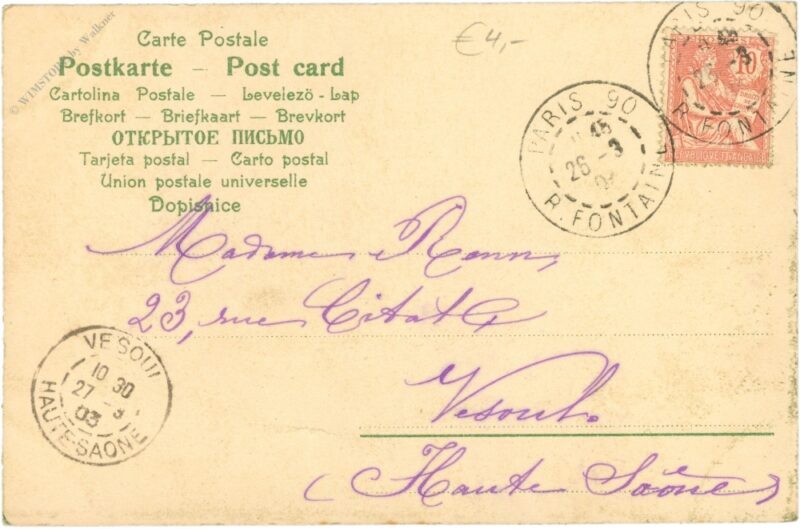 © WIMSTORE by Walkner
Carte Postale
Postkarte – Post card
Cartolina Postale — Levelező-Lap
Brefkort — Briefkaart — Brevkort
ОТКРЫТОЕ ПИСЬМО
Tarjeta postal — Carto postal
Union postale universelle
Dopisnice
€4,-
PARIS 90
26 - 3
R. FONTAINE
PARIS 90
R. FONTAINE
10
Madame
23, rue
Vesoul.
(Haute Saône)
VESOUL
10 30
27 - 3
03
HAUTE-SAONE